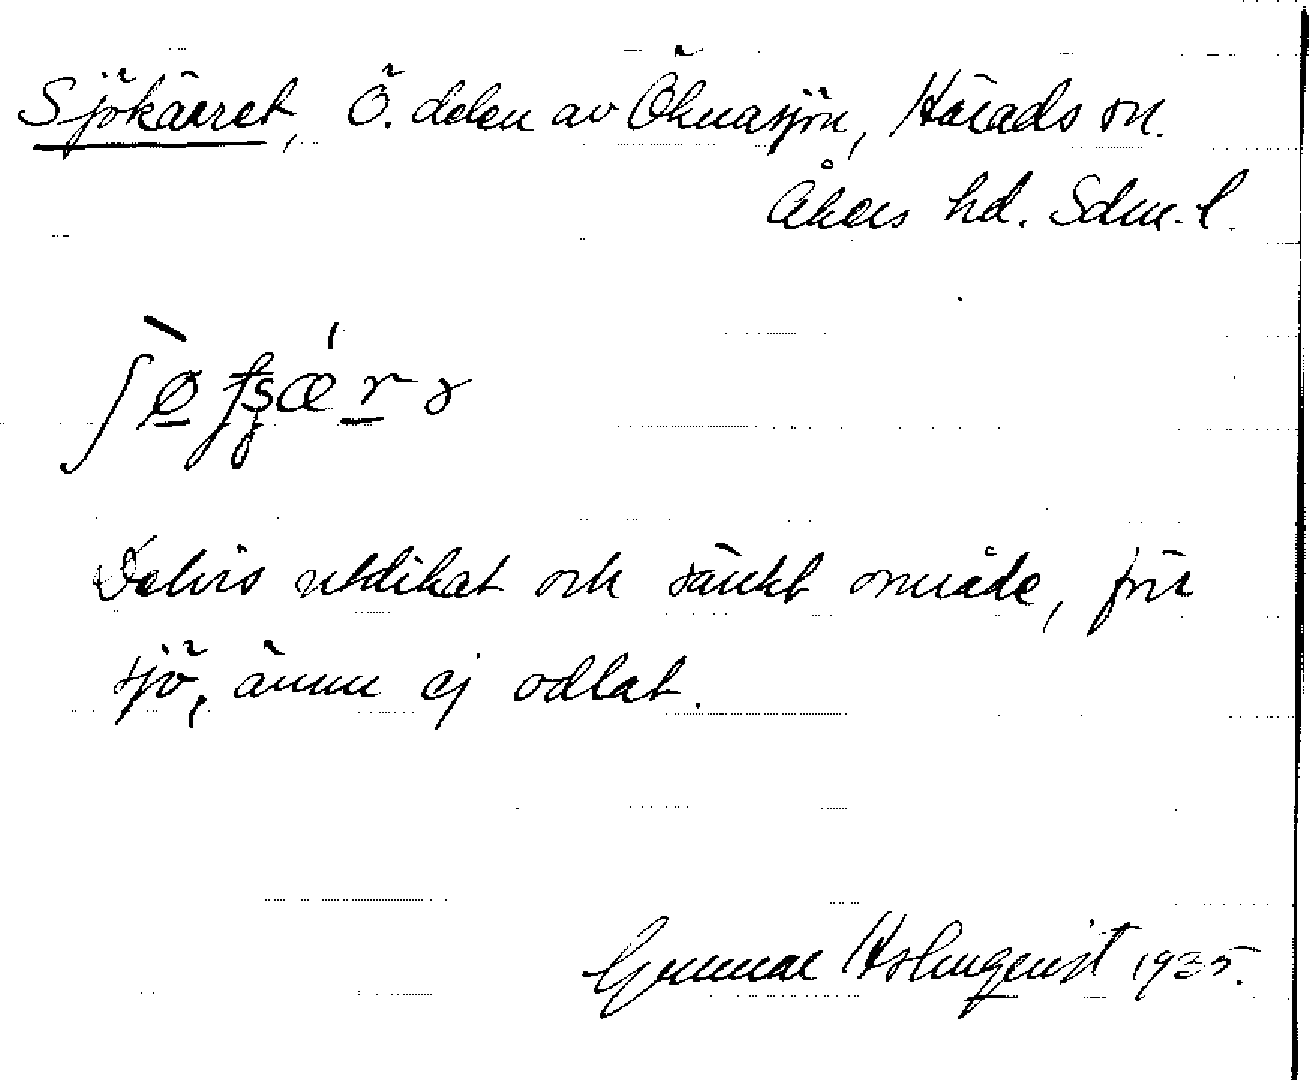 Sjökärret, Ö. delen av Öknasjön, Härads sn.
Åkers hd. Sdm. l.
Delvis utdikat och sänkt område, förr
sjö, ännu ej odlat.
Gunnar Holmqvist 1935.